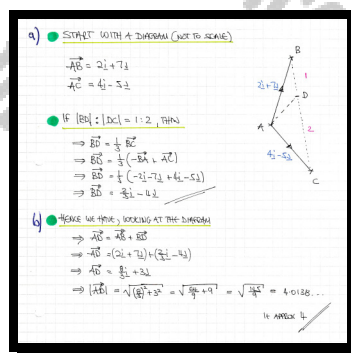 a) START WITH A DIAGRAM (NOT TO SCALE)
AB = 2i + 7j
AC = 4i - 5j
IF |BD| : |DC| = 1:2, THEN
⇒ BD = 1/3 BC
⇒ BD = 1/3 (-BA + AC)
⇒ BD = 1/3 (-2i - 7j + 4i - 5j)
⇒ BD = 2/3 i - 4j
B
1
2i+7j
D
A
2
4i-5j
C
b) HENCE WE HAVE, LOOKING AT THE DIAGRAM
⇒ AD = AB + BD
⇒ AD = (2i + 7j) + (2/3 i - 4j)
⇒ AD = 8/3 i + 3j
⇒ |AD| = √((8/3)² + 3²) = √(64/9 + 9) = √(145/9) = 4.0138...
IE APPROX 4